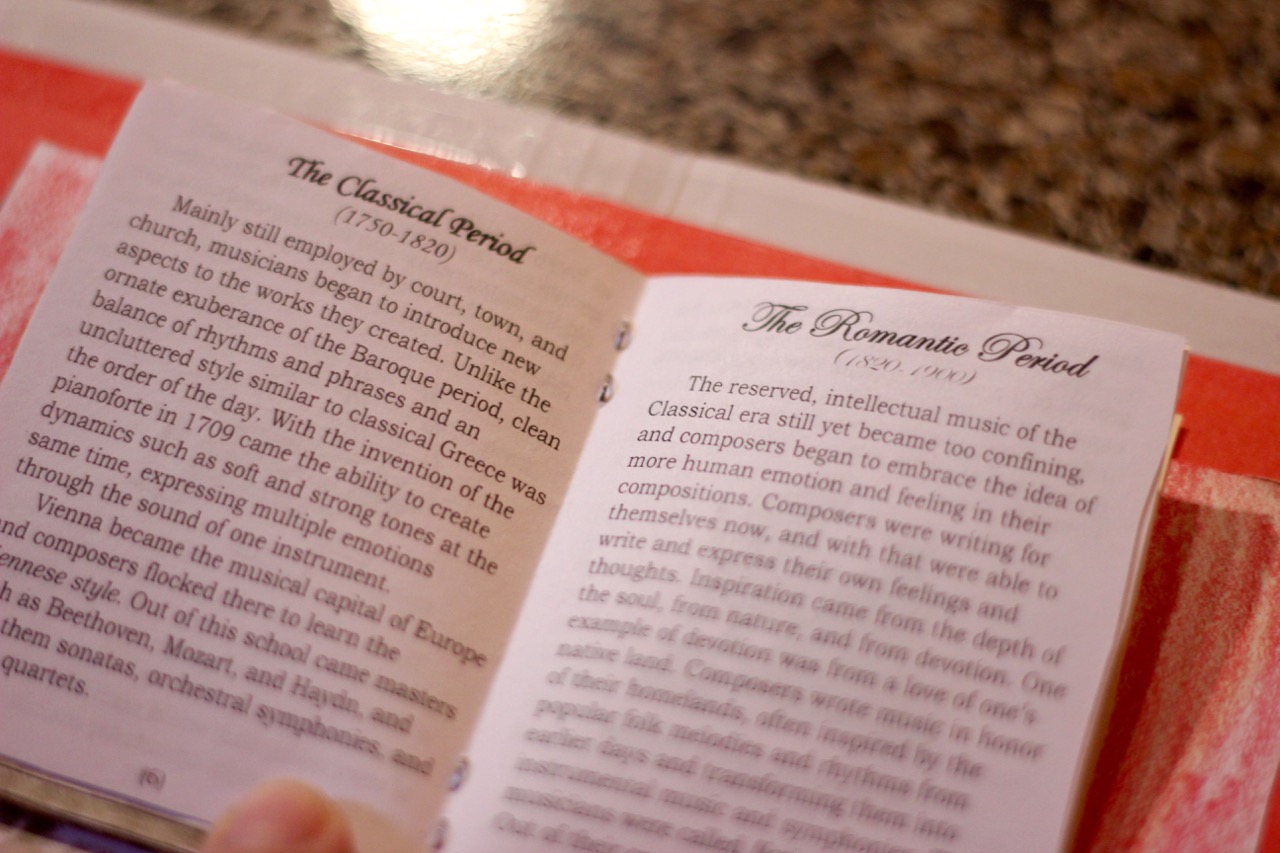 The Classical Period
(1750-1820)
Mainly still employed by court, town, and
church, musicians began to introduce new
aspects to the works they created. Unlike the
ornate exuberance of the Baroque period, clean
balance of rhythms and phrases and an
uncluttered style similar to classical Greece was
the order of the day. With the invention of the
pianoforte in 1709 came the ability to create
dynamics such as soft and strong tones at the
same time, expressing multiple emotions
through the sound of one instrument.
Vienna became the musical capital of Europe
and composers flocked there to learn the
ennese style. Out of this school came masters
h as Beethoven, Mozart, and Haydn, and
them sonatas, orchestral symphonies, and
quartets.
(6)
The Romantic Period
(1820-1900)
The reserved, intellectual music of the
Classical era still yet became too confining,
and composers began to embrace the idea of
more human emotion and feeling in their
compositions. Composers were writing for
themselves now, and with that were able to
write and express their own feelings and
thoughts. Inspiration came from the depth of
the soul, from nature, and from devotion. One
example of devotion was from a love of one's
native land. Composers wrote music in honor
of their homelands, often inspired by the
popular folk melodies and rhythms from
earlier days and transforming them into
instrumental music and symphonies.
musicians were called,
Out of